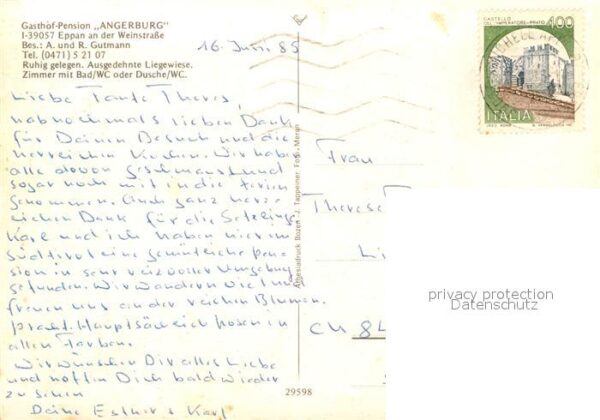 Gasthof-Pension „ANGERBURG"
I-39057 Eppan an der Weinstraße
Bes.: A. und R. Gutmann
Tel. (0471) 5 21 07
Ruhig gelegen. Ausgedehnte Liegewiese.
Zimmer mit Bad/WC oder Dusche/WC.
16. Juni 85
Liebe Tante Theres,
habnochmals lieben Dank
für Deinen Besuch und die
herrlichen Kuchen. Wir haben
alle davon geschmaust und
sogar noch mit in die Ferien
genommen. Auch ganz herz-
lichen Dank für die Setzlinge
Karl und ich haben hier im
Südtirol eine gemütliche Pen-
sion in sehr reizvoller Umgebung
gefunden. Wir wandern viel und
freuen uns an der reichen Blumen-
pracht. Hauptsächlich Rosen in
allen Farben.
Wir wünschen Dir alles Liebe
und hoffen Dich bald wieder
zu sehen
Deine Esther & Karl
Athesiadruck Bozen - J. Tappeiner Foto - Meran
29598
CASTELLO
DELL'IMPERATORE-PRATO
400
ITALIA
Frau
Therese
Li
CH 84
privacy protection
Datenschutz